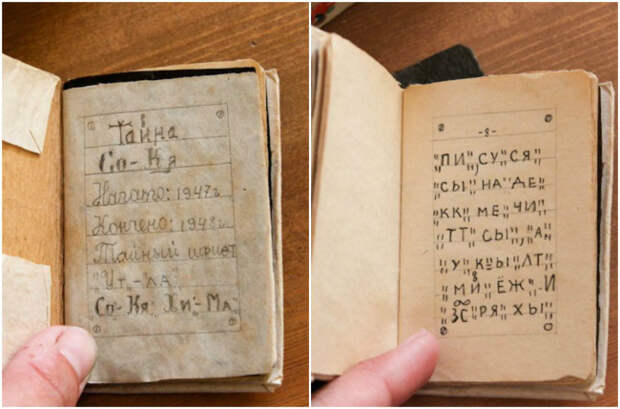 Тайна
Со-Кя
Начато: 1947г
Кончено: 1948г
Тайный шифт
"Ут,-ка"
Со-Кя Ли-Ма
-8-
"ПИ",СУ"СЯ"
"СЫ"НА"ДЕ"
"КК"МЕ"ЧИ"
"ТТ"СЫ",А"
"У"КЫ"ЛТ"
"МЙ"ЁЖ"И
"ЗС"РЯ"ХЫ"